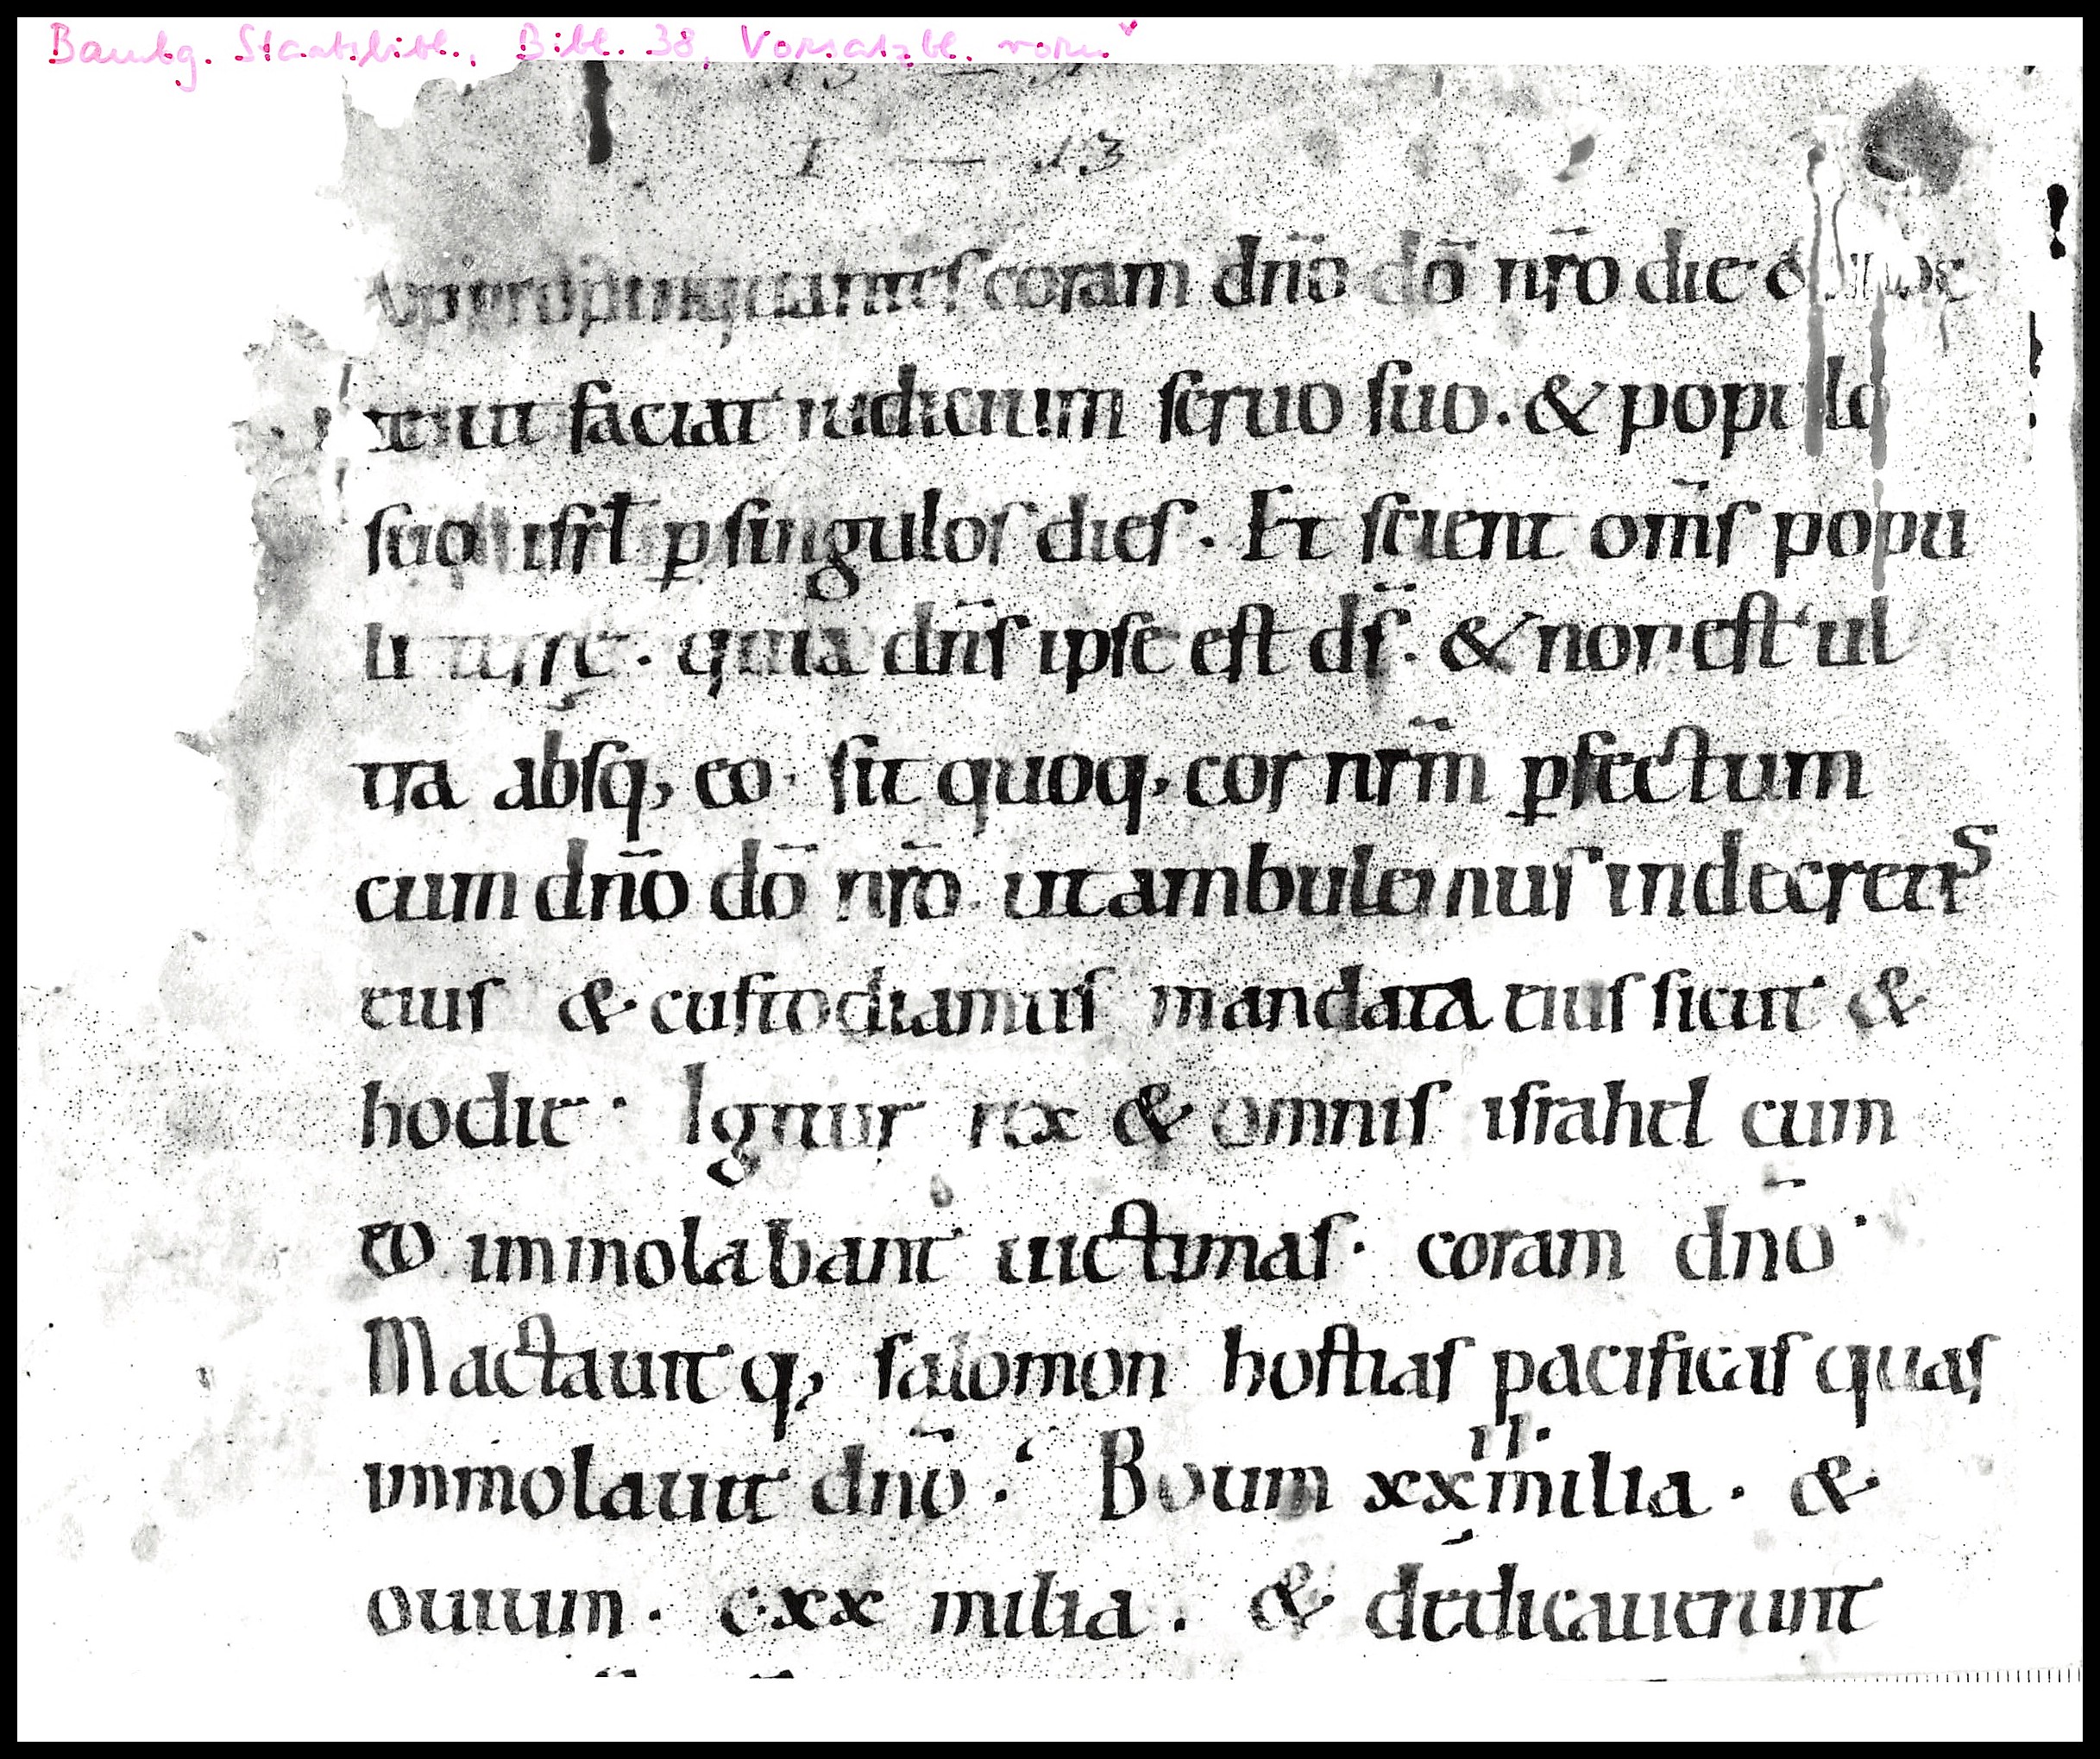 Bambg. Staatsbibl., Bibl. 38, Vorsatzbl. vorn v
appropinquantes coram dnō dō nr̄o die &
ut faciat iudicium seruo suo · & populo
suo isrł ꝑ singulos dies · Et scient om̄s popu
li terrę · quia dn̄s ipse est ds̄ · & non est ul
tra absq; eo · sit quoq; cor nrm̄ ꝑfectum
cum dnō dō nr̄o · ut ambulemus in decretis
eius & custodiamus mandata eius sicut &
hodie · Igitur rex & omnis israhel cum
eo immolabant uictimas · coram dnō ·
Mactauitq; salomon hostias pacificas quas
immolauit dnō · Boum xx ii· milia · &
ouium · cxx milia · & dedicauerunt